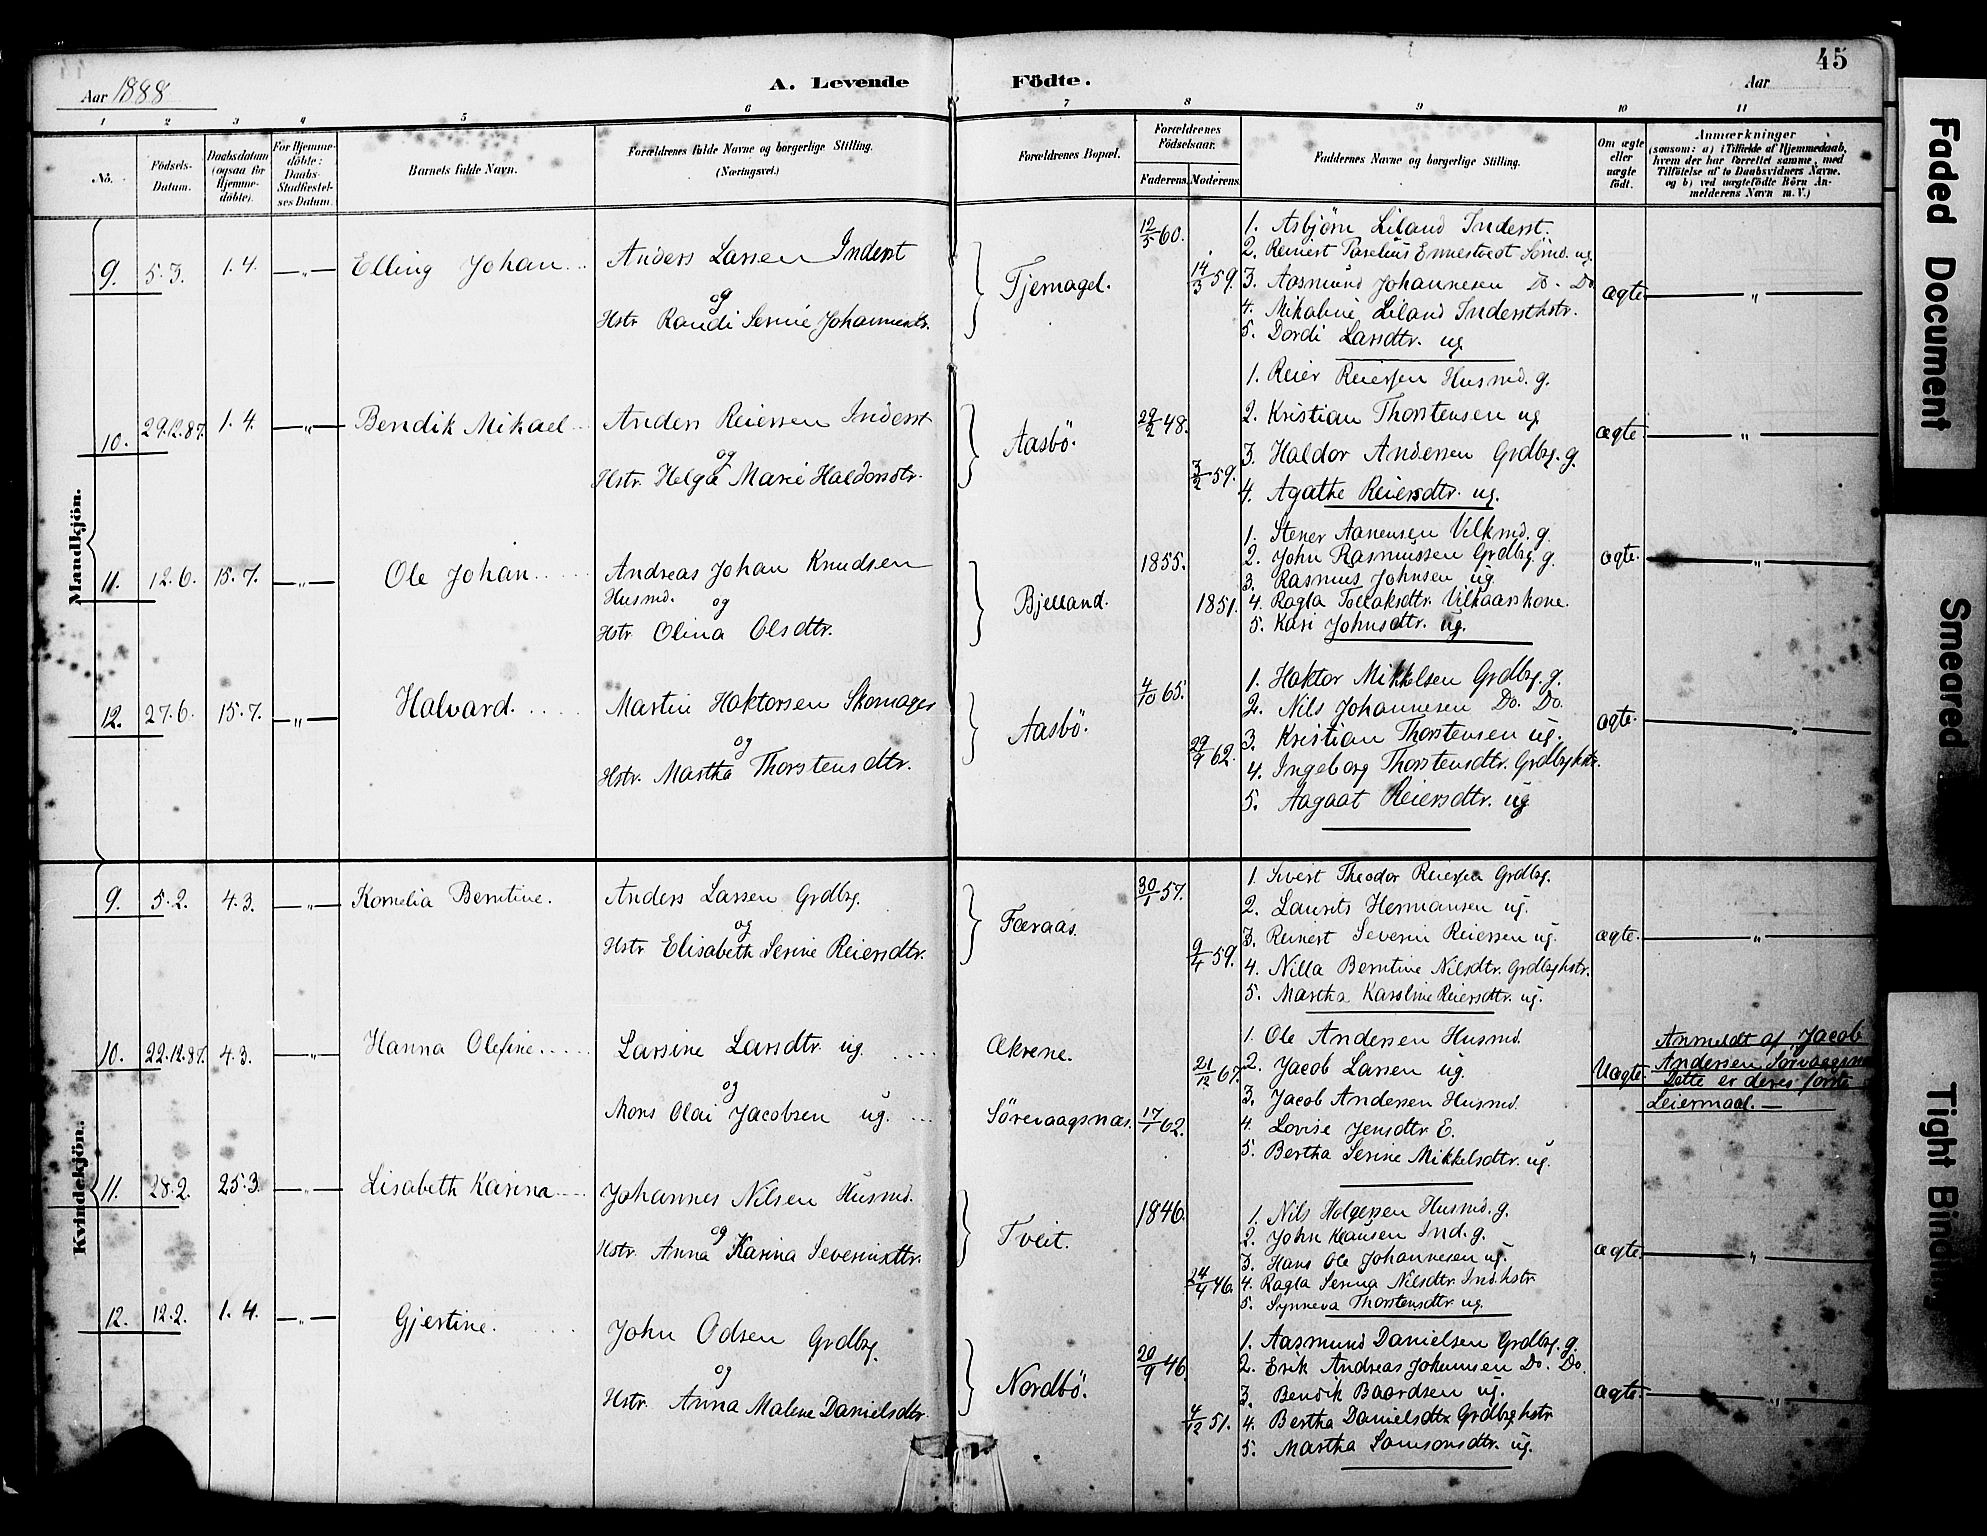 45
Aar 1888
A. Levende Födte.
Aar
1 2 3 4 5 6 7 8 9 10 11
No.
Födsels-Datum.
Daabsdatum (ogsaa for Hjemme-döbte).
For Hjemme-döbte: Daabs-Stadfæstel-ses Datum.
Barnets fulde Navn.
Forældrenes fulde Navne og borgerlige Stilling. (Næringsvei.)
Forældrenes Bopæl.
Forældrenes Födselsaar.
Faderens. Moderens.
Faddernes Navne og borgerlige Stilling.
Om ægte eller uægte födt.
Anmærkninger
(saasom: a) i Tilfælde af Hjemmedaab, hvem der har forrettet samme, med Tilföielse af to Daabsvidners Navne, og b) ved uægtefödte Börn An-melderens Navn m. V.)
Mandkjön.
9. 5.3. 1.4. —„— Elling Johan
Anders Larsen Inderst
og
Hstr Randi Serine Johannesdtr.
Tjernagel.
12/5 60.
14/3 59.
1. Asbjørn Liland Inderst.
2. Reinert Paselius Ennestvedt Sömd. ug
3. Aasmund Johannesen Do. Do
4. Mikaline Liland Inderst hstr.
5. Dordi Larsdtr. ug
ægte —„—
10. 29.12.87. 1.4. —„— Bendik Mikael
Anders Reiersen Inderst
og
Hstr. Helga Marie Haldorsdtr.
Aasbö.
29/2 48.
3/2 59.
1. Reier Reiersen Husmd. g.
2. Kristian Thorstensen ug
3. Haldor Andersen Grdbg. g.
4. Agathe Reiersdtr. ug.
ægte. —„—
11. 12.6. 15.7. —„— Ole Johan
Andreas Johan Knudsen
Husmd. og
Hstr Olina Olsdtr.
Bjelland.
1855.
1851.
1. Stener Aanensen Vilkmd. g.
2. John Rasmussen Grdbg. g.
3. Rasmus Johnsen ug
4. Ragla Tollaksdtr. Vilkaarskone.
5. Kari Johnsdtr. ug.
ægte. —„—
12. 27.6. 15.7. —„— Halvard.
Martin Haktorsen Skomager
og
Hstr. Martha Thorstensdtr.
Aasbö.
4/10 65.
29/9 62.
1. Haktor Mikkelsen Grdbg. g.
2. Nils Johannesen Do. Do.
3. Kristian Thorstensen ug.
4. Ingeborg Thorstensdtr. Grdbghstr.
5. Aagaat Reiersdtr. ug
ægte. —„—
Kvindekjön.
9. 5.2. 4.3. —„— Kornelia Berntine.
Anders Larsen Grdbg.
og
Hstr Elisabeth Serine Reiersdtr.
Færaas.
30/1 57.
9/4 59.
1. Sivert Theodor Reiersen Grdbg.
2. Laurits Hermansen ug.
3. Reinert Severin Reiersen ug.
4. Nilla Berntine Nilsdtr. Grdbghstr.
5. Martha Karoline Reiersdtr. ug.
ægte. —„—
10. 22.12.87. 4.3. —„— Hanna Olefine
Larsine Larsdtr. ug.
og
Mons Olai Jacobsen ug.
Økrene.
Sörevaagsnæs.
17/1 62.
21/12 67.
1. Ole Andersen Husmd.
2. Jacob Larsen ug.
3. Jacob Andersen Husmd.
4. Lovise Jensdtr E.
5. Bertha Serine Mikkelsdtr. ug.
Uægte.
Anmeldt af Jacob
Andersen Sörvaagsnæs
Dette er deres förste
Leiermaal.—
11. 28.2. 25.3. —„— Lisabeth Karina
Johannes Nilsen Husmd.
og
Hstr. Anna Karina Severinsdtr.
Tveit.
1846.
24/4 46.
1. Nils Holgersen Husmd. g.
2. John Klausen Ind. g.
3. Hans Ole Johannesen ug.
4. Ragla Serina Nilsdtr. Ind. hstr.
5. Synneva Thorstensdtr. ug.
ægte. —„—
12. 12.2. 1.4. —„— Gjertine.
John Odsen Grdbg.
og
Hstr. Anna Malene Danielsdtr.
Nordbö.
20/9 46.
4/12 51.
1. Aasmund Danielsen Grdbg. g.
2. Erik Andreas Johannsen Do. Do.
3. Bendik Baardsen ug.
4. Bertha Danielsdtr Grdbghstr
5. Martha Samsonsdtr. ug.
ægte. —„—
Faded Document
Smeared
Tight Binding